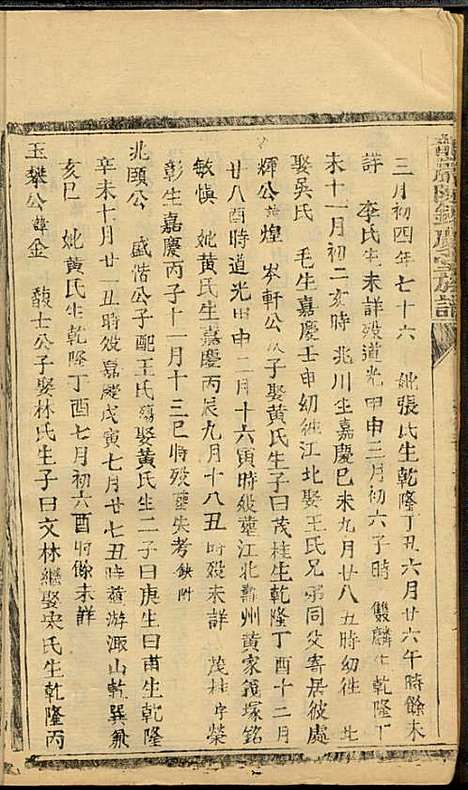 三月初四年七十六　妣張氏生乾隆丁丑六月廿六午時餘未
詳　李氏生未詳歿道光甲申三月初六子時　雙麟生乾隆丁
未十一月初二亥時　兆川生嘉慶己未九月廿八丑時幼徃
娶吳氏　毛生嘉慶壬申幼徃江北娶王氏兄弟同父寄居彼處
輝公諱煌　岑軒公次子娶黃氏生子曰茂桂生乾隆丁酉十二月
廿八酉時道光甲申二月十六寅時歿塟江北壽州黃家鏡塚銘
敏愼　妣黃氏生嘉慶丙辰九月十八丑時歿未詳　茂桂字榮
彰生嘉慶丙子十一月十三巳時歿塟失考　附
兆頤公　盛偕公子配王氏殤娶黃氏生二子曰庚生曰甫生乾隆
辛未十月廿一丑時歿嘉慶戊寅七月廿七丑時塟游溈山乾巽兼
亥巳　妣黃氏生乾隆丁酉七月初六酉時餘未詳
玉攀公諱金　馥士公子娶林氏生子曰文林繼娶宋氏生乾隆丙
族譜